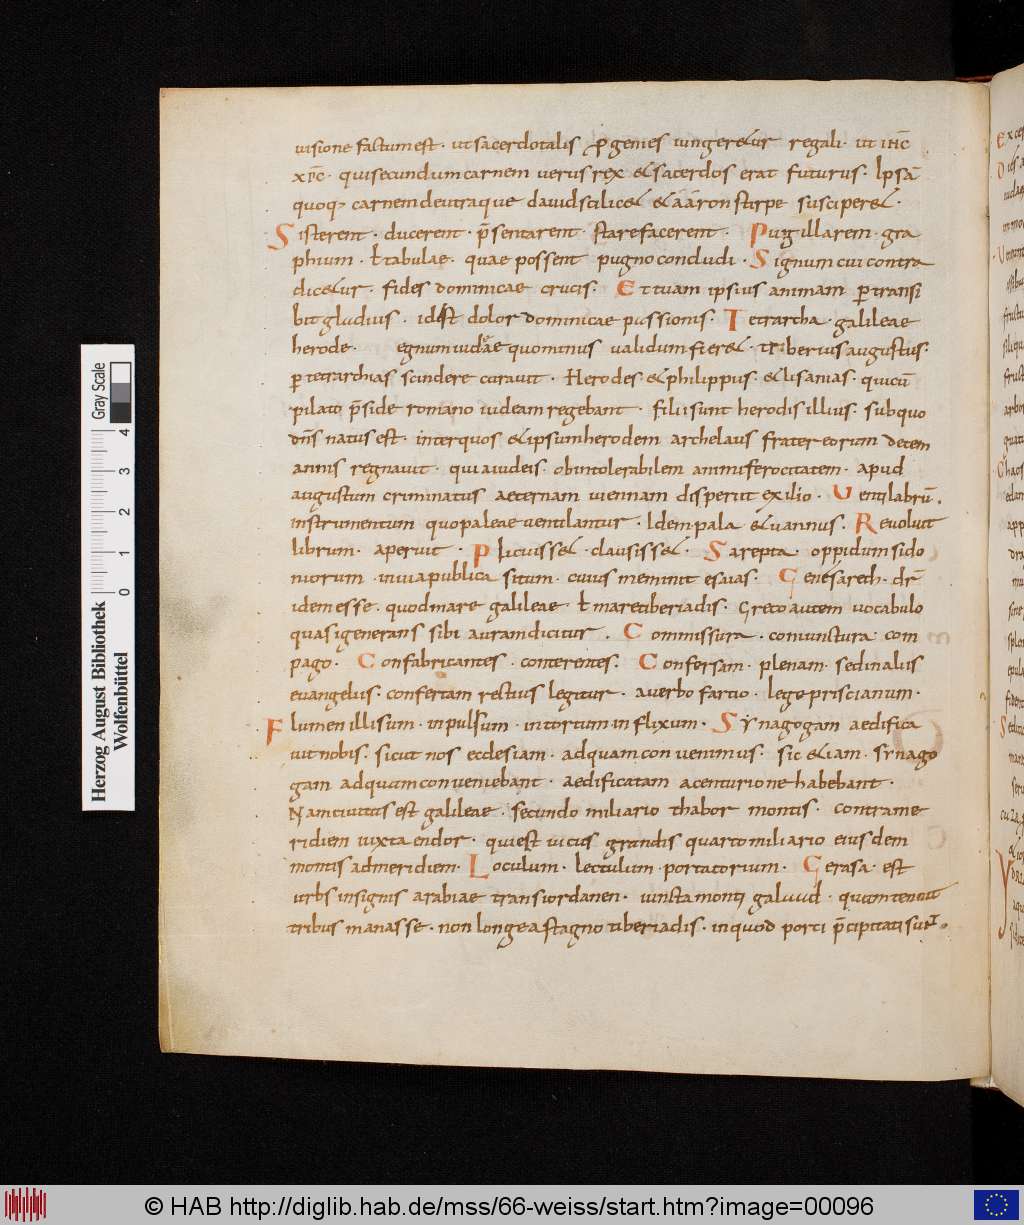 uisione factum est · ut sacerdotalis ꝓgenies iungeretur regali · ut ihc̄
xpc̄ · qui secundum carnem uerus rex & sacerdos erat futurus · Ipsā
quoq· carnem de utraque dauid scilicet & aaron stirpe susciperet ·
Sisterent · ducerent · p̄sentarent · stare facerent · Pugillarem · gra
phium · ł tabulae · quae possent pugno concludi · Signum cui contra
dicetur · fides dominicae crucis · Et tuam ipsius animam ꝑtransi
bit gladius · id est dolor dominicae passionis · Tetrarcha · galileae
herode · egnum iudeae quominus ualidum fieret · tiberius augustus ·
ꝑ tetrarchias scindere curauit · Herodes & philippus · & lisanias · qui cū
pilato p̄side romano iudeam regebant · filii sunt herodis illius · sub quo
dn̄s natus est · inter quos & ipsum herodem archelaus frater eorum decem
annis regnauit · qui a iudeis · ob intolerabilem animi ferocitatem · apud
augustum criminatus aeternam uiennam disperiit exilio · Uentilabrū ·
instrumentum quo paleae uentilantur · Idem pala & uannus · Reuoluit
librum · aperuit · Plicuisset · clausisset · Sarepta · oppidum sido
niorum · in uia publica situm · cuius meminit esaias · Genesareth · dr̄
idem esse · quod mare galileae · ł mare tiberiadis · Greco autem uocabulo
quasi generans sibi auram dicitur · Commissura · coniunctura · com
pago · Confabricantes · conterentes · Confersam · plenam · sed in aliis
euangeliis · confertam rectius legitur · a uerbo farcio · lege priscianum ·
Flumen illisum · inpulsum · intortum inflixum · Synagogam aedifica
uit nobis · sicut nos ecclesiam · ad quam conuenimus · sic etiam · synago
gam ad quam conueniebant · aedificatam a centurione habebant ·
Naim ciuitas est galileae · secundo miliario thabor montis · contra me
ridiem iuxta endor · qui est uicus grandis quarto miliario eiusdem
montis ad meridiem · Loculum · lectulum · portatorium · Gerasa · est
urbs insignis arabiae trans iordanen · iuncta monti galaad · quam tenuit
tribus manasse · non longe a stagno tiberiadis · in quod porci p̄cipitati sunt ·
Herzog August Bibliothek
Wolfenbüttel
Gray Scale
0 1 2 3 4
© HAB http://diglib.hab.de/mss/66-weiss/start.htm?image=00096